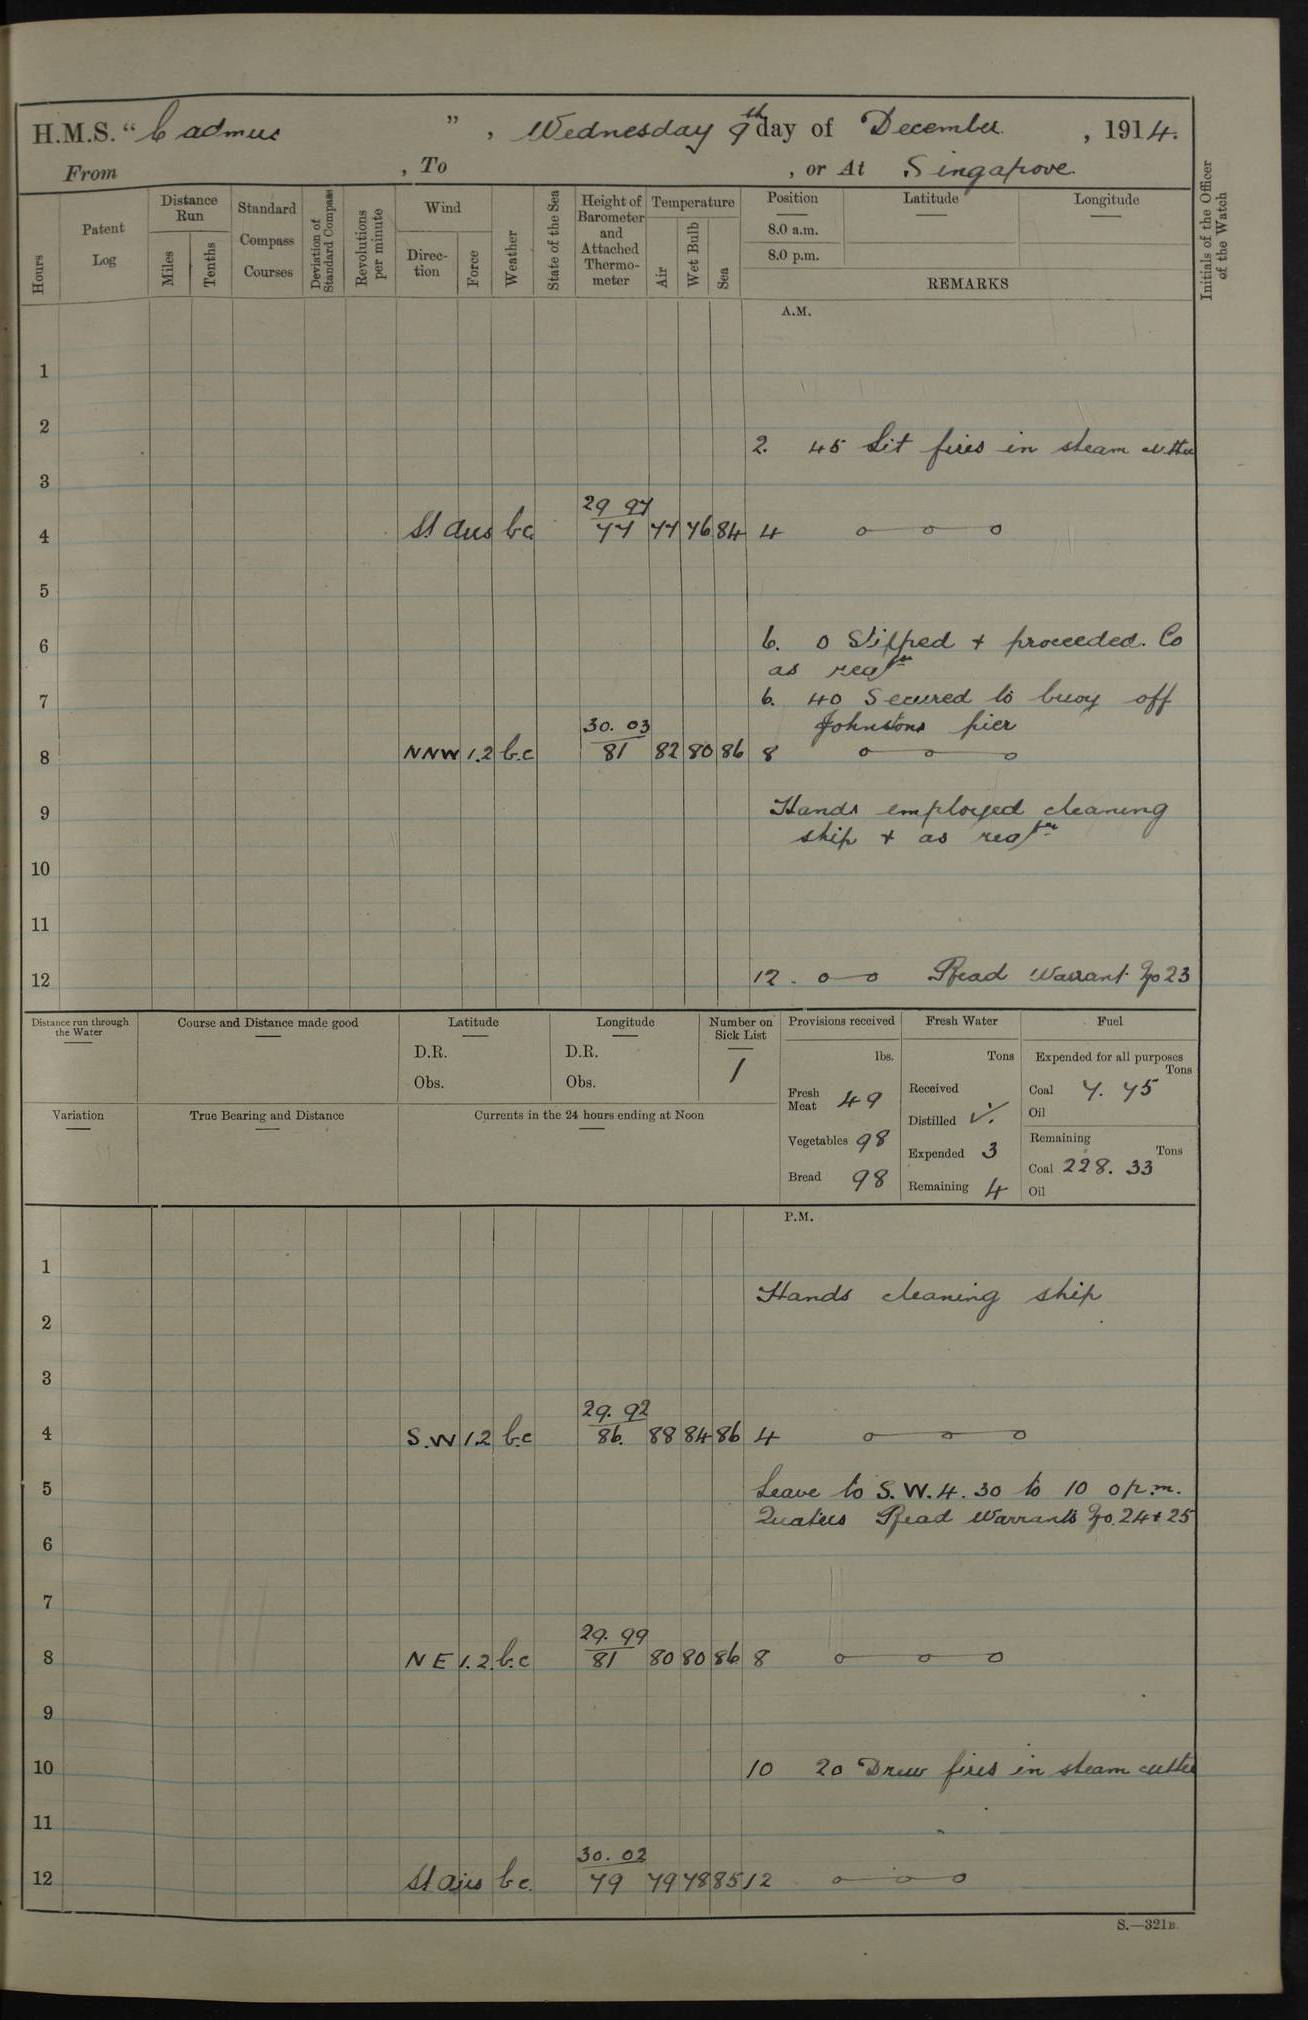 H.M.S. "Cadmus", Wednesday 9th day of December, 1914.
From , To , or At Singapore.
Hours
Patent Log
Distance Run
Miles
Tenths
Standard Compass Courses
Deviation of Standard Compass
Revolutions per minute
Wind
Direction
Force
Weather
State of the Sea
Height of Barometer and Attached Thermometer
Temperature
Air
Wet Bulb
Sea
Position
8.0 a.m.
8.0 p.m.
Latitude
Longitude
REMARKS
Initials of the Officer of the Watch
A.M.
1
2
2. 45 Lit fires in steam cutter
3
29 97
4 St airs bc 77 77 76 84 4
5
6 6. 0 Slipped + proceeded. Co
as reqre
7 6. 40 Secured to buoy off
30. 03 Johnstons pier
8 NNW 1.2 b.c 81 82 80 86 8
9 Hands employed cleaning
ship + as reqre
10
11
12 12. Read Warrant No 23
Distance run through the Water
Course and Distance made good
Latitude
D.R.
Obs.
Longitude
D.R.
Obs.
Number on Sick List
1
Provisions received
lbs.
Fresh Meat 49
Vegetables 98
Bread 98
Fresh Water
Tons
Received
Distilled
Expended 3
Remaining 4
Fuel
Expended for all purposes
Tons
Coal 7. 75
Oil
Remaining
Tons
Coal 228. 33
Oil
Variation
True Bearing and Distance
Currents in the 24 hours ending at Noon
P.M.
1
Hands cleaning ship
2
3
29. 92
4 S.W 1.2 b.c 86. 88 84 86 4
5 Leave to S.W. 4. 30 to 10 0 p.m.
Quaters Read Warrants No. 24 + 25
6
7
29. 99
8 N E 1.2. b.c 81 80 80 86 8
9
10 10 20 Drew fires in steam cutter
11
30. 02
12 St airs b c. 79 79 78 85 12
S.—321B.